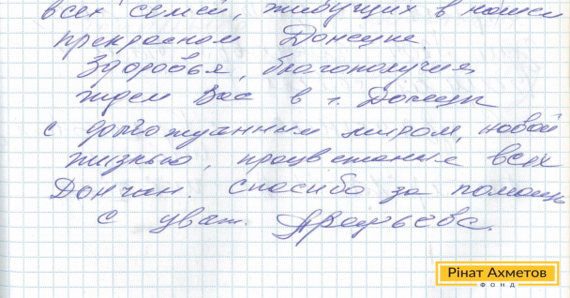 всех семей, живущих в нашем
прекрасном Донецке.
Здоровья, благополучия,
ждем Вас в г. Донецк
с долгожданным миром, новой
жизнью, процветание всех
Дончан. Спасибо за помощь
с уваж.
Рінат Ахметов
ФОНД